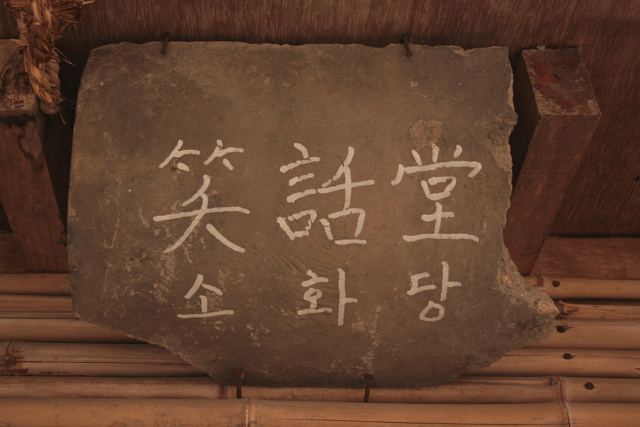 笑話堂
소화당